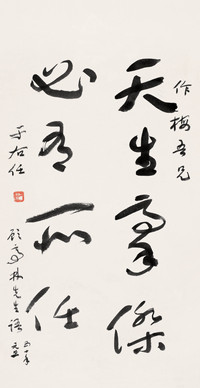 作梅吾兄
天生豪傑
必有所任
顧亭林先生語
于右任